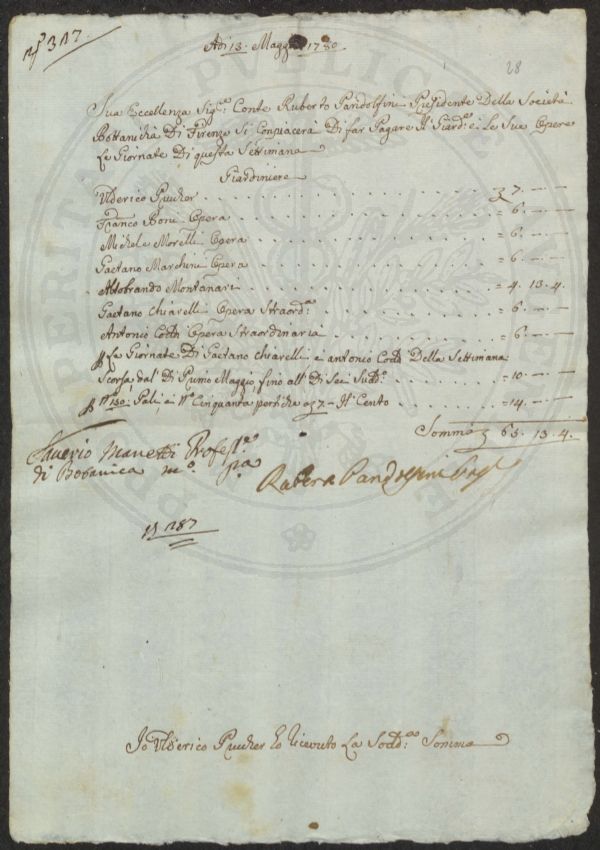 N° 317
Adi 13. Maggio 1780.
28
Sua Eccellenza Sig.e Conte Ruberto Pandolfini Presidente Della Società
Bottanicha Di Firenze Si Conpiacerà Di far Pagare Al Giard.e e Le Sue Opere
Le Giornate Di questa Settimana
Giardiniere
Ulderico Prucker . . . 7. — —
Franco Boni Opera . . . = 6. — —
Michele Morelli Opera . . . = 6. — —
Gaetano Marchini Opera . . . = 6. — —
Aldobrando Montanari . . . = 4. 13. 4.
Gaetano Chiarelli Opera Straord.a . . . = 6. — —
Antonio Cotti Opera Straordinaria . . . = 6. — —
P La Giornate Di Gaetano Chiarelli e antonio Cotti Della Settimana
Scorsa dal Di Primo Maggio fino all Di Sei Sudd.o . . . = 10. — —
P N° 150. Pali, e N° Cinquanta pertiche a 7. Il Cento . . . = 14. — —
Somma 65. 13. 4.
Saverio Manetti Profess.e
di Botanica m.o p.a
Ruberto Pandolfini
287
Io Ulderico Prucker ho ricevuto La Sodd.a Somma
PERITA PUBLICAE